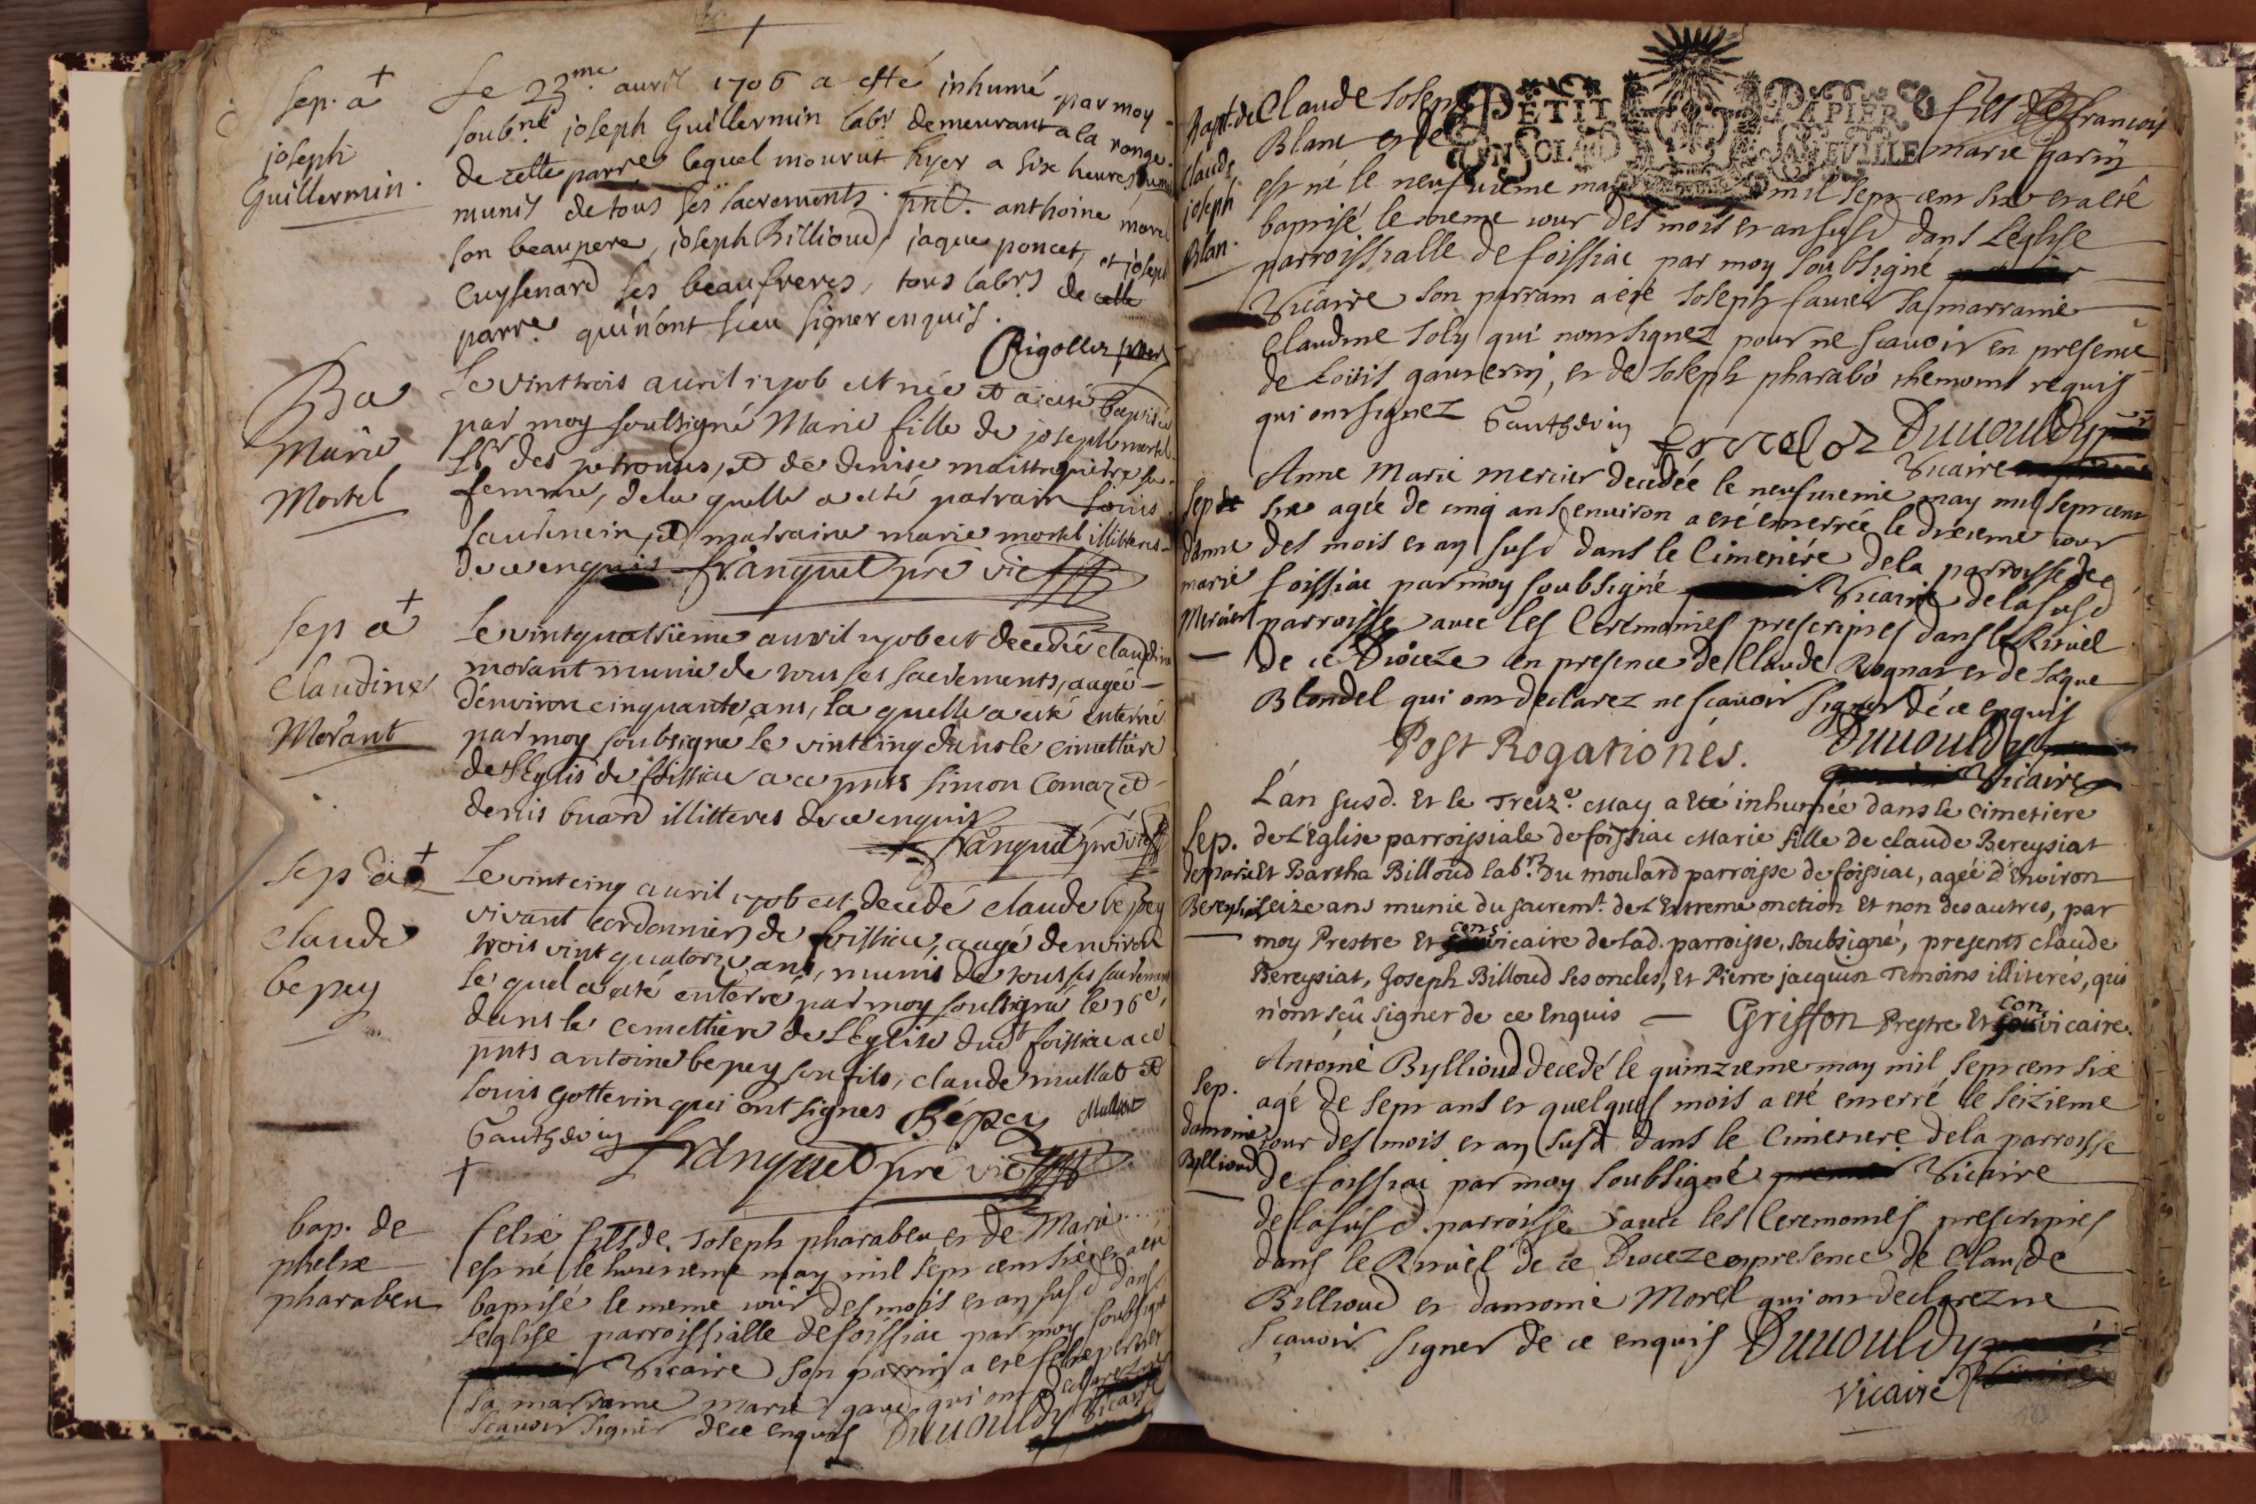 sep. a
joseph
Guillermin.
Le 23me. avril 1706 a esté inhumé par moy
soubné joseph Guillermin labr demeurant a la ronge
de cette parre lequel mourut hyer a six heures
munis de tous ses sacrements. pnt. anthoine morel
son beaupere, joseph Billioud, jaque poncet, et joseph
Cuysenard ses beaufreres, tous labrs de cette
parre qui n'ont sceu signer enquis.
Rigollet
Ba
Marie
Mortel
Le vinttrois avril 1706 est née et a esté baptisée
par moy soubsigné Marie fille de joseph mortel
Lr des petrouses, et de denise maistre pierre sa
femme, de la quelle a esté parrain Louis
et marraine marie mortel illitteres
de ce enquis franquet pre vic
sep a
Claudine
Morant
Le vintquatrieme avril 1706 est decedée claudine
morant munie de tous ses sacrements, aagée
d'environ cinquante ans, la quelle a esté enterré
par moy soubsigné le vintcinq dans le cimettiere
de l'Eglis de foissiac a ce pnts simon Comaz et
denis buard illitteres de ce enquis
franquet pre vic
sep a
claude
bepey
Le vintcinq avril 1706 est decedé claude bepey
vivant cordonnier de foissiac, aagé denviron
trois vint quatorze ans, munis de tous ses sacremens
le quel a esté enterré par moy soubsigné le 26e,
dans le cemettiere de l'Eglise dud foissiac a ce
pnts antoine bepey son fils, claude mullat et
Louis gotterin qui ont signes Bépey Mullat
Gauthevin
franquet pre vic
bap. de
phelix
pharabeu
felix fils de Joseph pharabeu et de Marie
est né le huitieme may mil sept cent six et a eté
baptisé le meme iour des mois et an susd dans
l'eglise parroissialle de foissiac par moy soubsigné
Vicaire son parrin a eté
sa marraine marie qui ont declarez ne
scavoir signer de ce enquis Duuouldy Vicaire
PETIT PAPIER
Bapt. de
Claude
joseph
Blan.
Claude Joseph fils de francois
Blanc et de marie gariy
est né le neufuieme may mil sept cent six et a eté
baptisé le meme iour des mois et an susd dans L'eglise
parroissialle de foissiac par moy soubsigné
Vicaire son parrain a eté Joseph sa marraine
Claudine Joly qui nont signez pour ne scavoir en presence
de Loüis gauterin, et de Joseph pharabó themoins requis
qui ont signez Gauthevin Duuouldy
Vicaire
Sep de
danne
marie
Mercier
Anne Marie mercier decedée le neufuieme may mil sept cent
six agée de cinq ans environ a eté enterrée le dixieme iour
des mois et an susd dans le Cimetiére de la parroisse de
foissiac par moy soubsigné Vicaire de la susd
parroisse avec les Ceremonies prescriptes dans le Rituel
de ce Dioceze en presence de Claude Rognar et de Jaque
Blondel qui ont declarez ne scavoir signer de ce enquis
Duuouldy
Vicaire
Post Rogationés.
Sep.
de marie
Bereysiat
L'an susd. Et le Treize. May a eté inhumée dans le cimetiere
de L'Eglise parroissiale de foissiac Marie fille De claude Bereysiat
Et Bartha Billoud labrs. Du moulard parroisse de foissiac, agée d'Environ
seize ans munie du sacremt. de L'Extreme onction Et non des autres, par
moy Prestre Et convicaire de lad. parroisse, soubsigné, presents claude
Bereysiat, Joseph Billoud ses oncles, Et Pierre jacquion Temoins illiterés, qui
n'ont seû signer de ce Enquis — Griffon Prestre Et convicaire.
Sep.
dantoine
Byllioud
Antoine Byllioud decedé le quinzieme may mil sept cent six
agé de sept ans et quelques mois a eté enterré le seizieme
iour des mois et an susd dans le Cimetiere de la parroisse
de foissiac par moy soubsigné Vicaire
de la susd. parroisse avec les Ceremonies prescriptes
dans le Rituel de ce Dioceze en presence de Claude
Billioud et dantoine Morel qui ont declarez ne
scavoir signer de ce enquis Duuouldy
Vicaire